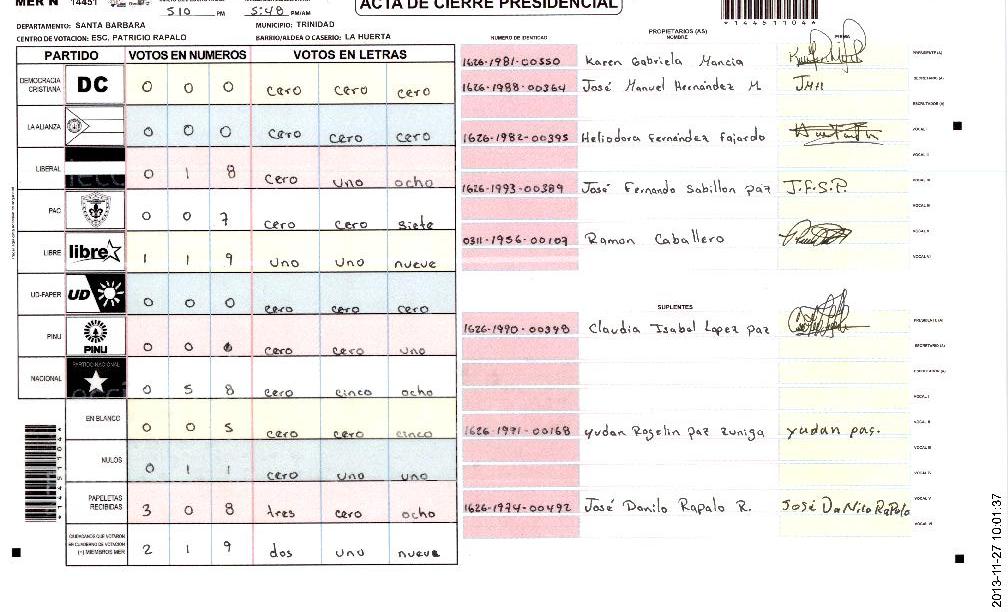 MER N 14451
510 PM 5:48 PM/AM
ACTA DE CIERRE PRESIDENCIAL
*14451104*
DEPARTAMENTO: SANTA BARBARA MUNICIPIO: TRINIDAD
CENTRO DE VOTACION: ESC. PATRICIO RAPALO BARRIO/ALDEA O CASERIO: LA HUERTA
PARTIDO VOTOS EN NUMEROS VOTOS EN LETRAS
DEMOCRACIA CRISTIANA DC 0 0 0 cero cero cero
LA ALIANZA 0 0 0 cero cero cero
LIBERAL 0 1 8 cero uno ocho
PAC 0 0 7 cero cero siete
LIBRE libre 1 1 9 uno uno nueve
UD-FAPER UD 0 0 0 cero cero cero
PINU PINU 0 0 cero cero uno
NACIONAL PARTIDO NACIONAL 0 5 8 cero cinco ocho
EN BLANCO 0 0 5 cero cero cinco
NULOS 0 1 1 cero uno uno
PAPELETAS RECIBIDAS 3 0 8 tres cero ocho
CIUDADANOS QUE VOTARON EN CUADERNO DE VOTACION (+) MIEMBROS MER 2 1 9 dos uno nueve
NUMERO DE IDENTIDAD PROPIETARIOS (AS) NOMBRE FIRMA
1626-1981-00550 Karen Gabriela Mancia PRESIDENTE (A)
1626-1988-00364 José Manuel Hernández M. JMH SECRETARIO (A)
ESCRUTADOR (A)
1626-1982-00395 Heliodora Fernández Fajardo VOCAL I
VOCAL II
1626-1993-00389 José Fernando Sabillon paz J.F.S.P. VOCAL III
VOCAL IV
0311-1956-00107 Ramon Caballero VOCAL V
VOCAL VI
SUPLENTES
1626-1990-00398 Claudia Isabal Lopez paz PRESIDENTE (A)
SECRETARIO (A)
ESCRUTADOR (A)
VOCAL I
1626-1971-00168 yudan Rogelin paz zuniga yudan paz. VOCAL II
VOCAL III
VOCAL IV
1626-1974-00492 José Danilo Rapalo R. José DaNilo RaPalo VOCAL V
VOCAL VI
*14451104*
2013-11-27 10:01:37